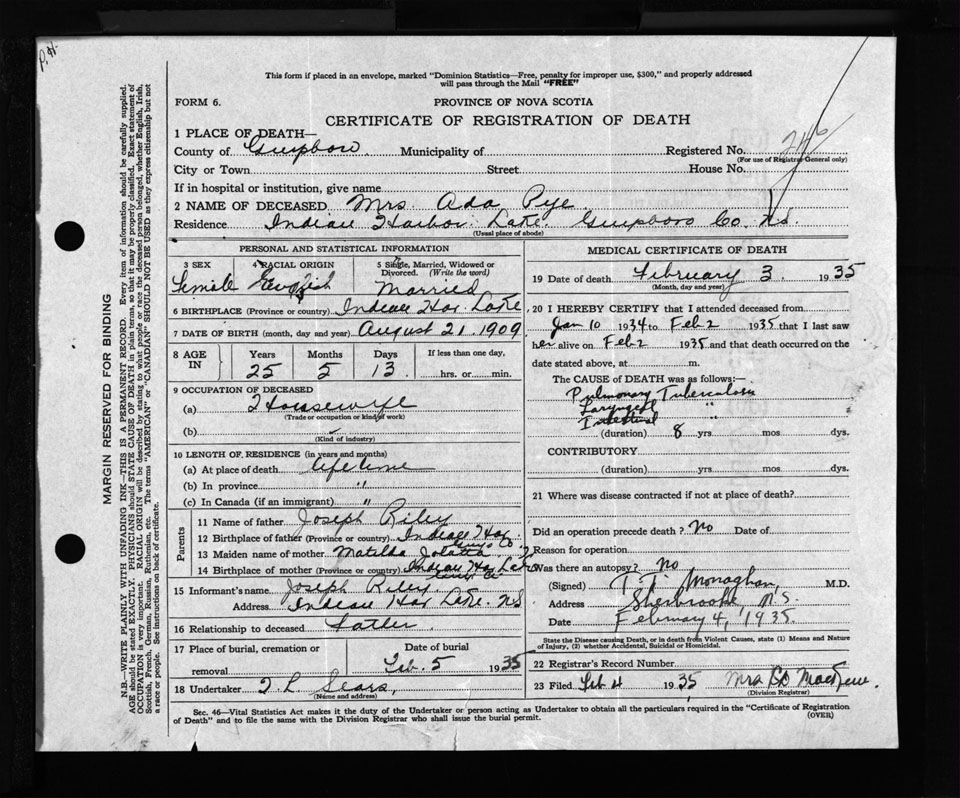 P.H.
This form if placed in an envelope, marked "Dominion Statistics—Free, penalty for improper use, $300," and properly addressed
will pass through the Mail "FREE"
FORM 6.
PROVINCE OF NOVA SCOTIA
CERTIFICATE OF REGISTRATION OF DEATH
1 PLACE OF DEATH—
County of Guysboro. Municipality of Registered No. 246
(For use of Registrar General only)
City or Town Street House No.
If in hospital or institution, give name
2 NAME OF DECEASED Mrs Ada Pye
Residence Indian Harbor Lake. Guysboro Co. N.S.
(Usual place of abode)
PERSONAL AND STATISTICAL INFORMATION
3 SEX 4 RACIAL ORIGIN 5 Single, Married, Widowed or
Divorced. (Write the word)
Female English Married
6 BIRTHPLACE (Province or country) Indian Har. Lake
7 DATE OF BIRTH (month, day and year) August 21. 1909
8 AGE IN Years Months Days If less than one day,
25 5 13. hrs. or min.
9 OCCUPATION OF DECEASED
(a) Housewife
(Trade or occupation or kind of work)
(b)
(Kind of industry)
10 LENGTH OF RESIDENCE (in years and months)
(a) At place of death life time
(b) In province "
(c) In Canada (if an immigrant) "
Parents
11 Name of father Joseph Riley
12 Birthplace of father (Province or country) Indian Har.
Guys Co.
13 Maiden name of mother Matilda
14 Birthplace of mother (Province or country) Indian Har Lake
Guys Co
15 Informant's name Joseph Riley.
Address Indian Har Lake. N.S
16 Relationship to deceased Father.
17 Place of burial, cremation or Date of burial
removal Feb. 5 1935
18 Undertaker Sears,
(Name and address)
MEDICAL CERTIFICATE OF DEATH
19 Date of death February 3. 1935
(Month, day and year)
20 I HEREBY CERTIFY that I attended deceased from
Jan 10 1934 to Feb 2 1935 that I last saw
her alive on Feb 2 1935 and that death occurred on the
date stated above, at m.
The CAUSE of DEATH was as follows:—
Pulmonary Tuberculosis
Laryngeal "
Intestinal "
(duration) 8 yrs mos dys.
CONTRIBUTORY
(duration) yrs. mos. dys.
21 Where was disease contracted if not at place of death?
Did an operation precede death? No Date of
Reason for operation
Was there an autopsy? No
(Signed) T. T. Monaghan, M.D.
Address Sherbrooke N.S.
Date February 4, 1935.
State the Disease causing Death, or in death from Violent Causes, state (1) Means and Nature
of Injury, (2) whether Accidental, Suicidal or Homicidal.
22 Registrar's Record Number
23 Filed Feb 4 1935 Mrs
(Division Registrar)
Sec. 46—Vital Statistics Act makes it the duty of the Undertaker or person acting as Undertaker to obtain all the particulars required in the "Certificate of Registration
of Death" and to file the same with the Division Registrar who shall issue the burial permit. (OVER)
MARGIN RESERVED FOR BINDING
N.B.—WRITE PLAINLY WITH UNFADING INK—THIS IS A PERMANENT RECORD. Every item of information should be carefully supplied.
AGE should be stated EXACTLY. PHYSICIANS should STATE CAUSE OF DEATH in plain terms, so that it may be properly classified. Exact statement of
OCCUPATION is very important. RACIAL ORIGIN will be described by stating to what people or race the deceased person belonged, whether English, Irish,
Scottish, French, German, Russian, Ruthenian, etc. The terms "AMERICAN" or "CANADIAN" SHOULD NOT BE USED as they express citizenship but not
a race or people. See instructions on back of certificate.